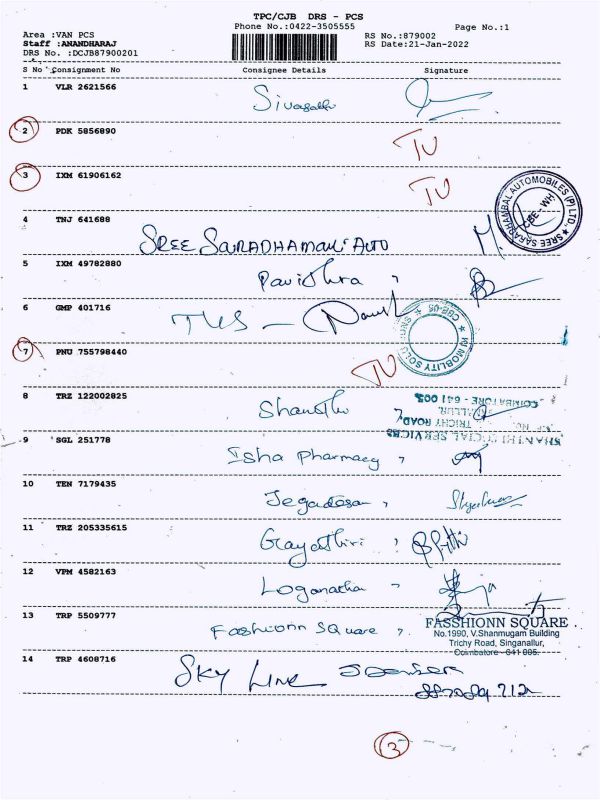 TPC/CJB DRS - PCS
Phone No.:0422-3505555
Page No.:1
Area :VAN PCS
RS No.:879002
Staff :ANANDHARAJ
RS Date:21-Jan-2022
DRS No. :DCJB87900201
S No Consignment No Consignee Details Signature
1 VLR 2621566
2 PDK 5856890 TU
3 IXM 61906162 TU
SREE SARADHAMBAL AUTOMOBILES (P) LTD.
CBE-WH
4 TNJ 641688
5 IXM 49782880 Pavithra
6 GMP 401716 TVS -
KI MOBILITY SOLU
CBE-05
7 PNU 755798440 TU
8 TRZ 122002825 Shanthi
COIMBATORE - 641 005.
TRICHY ROAD,
9 SGL 251778 Isha Pharmacy ,
10 TEN 7179435 Jegadesan ,
11 TRZ 205335615 Gayathiri ,
12 VPM 4582163 Loganathan
13 TRP 5509777 Fashionn Square ,
FASSHIONN SQUARE
No.1990, V.Shanmugam Building
Trichy Road, Singanallur,
Coimbatore - 641 005.
14 TRP 4608716 SKY LINE
3